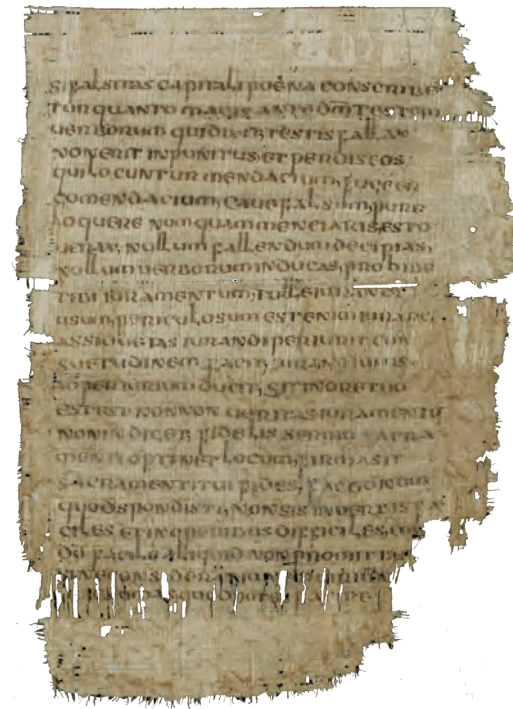 SIFALSITAS CAPITALI POENA CONSCRIBE
TUR QUANTO MAGIS ANTE DM TESTEM
UERBORUM QUI DIXIT, TESTIS FALLAX
NON ERIT INPUNITUS, ET PERDIS EOS
QUI LOCUNTUR MENDACIUM, FUGE ER
CO MENDACIUM, CAUE FALSUM, PURE
LOQUERE NUMQUAM MENCIARIS, ESTO
UERAX, NULLUM FALLENDUM DECIPIAS,
NULLUM UERBORUM INDUCAS, PROHIBE
TIBI IURAMENTUM, TOLLE IURANDI
USUM, PERICULOSUM EST ENIM IURARE,
ASSIDUETAS IURANDI PERIURII CON
SUETUDINEM FACIT, IURANDI USUS
AD PERIURIUM DUCIT, SIT IN ORE TUO
EST EST NON NON UERITAS IURAMENTU
NON INDIGET, FIDELIS SERMO SACRA
MENTI OPTINET LOCUM, FIRMA SIT
SACRAMENTI TUI FIDES, FAC BONUM
QUOD SPONDISTI, NON SIS IN UERBIS FA
CILES ET IN OPERIBUS DIFFICILES,
ALIQUID NON PROMITTAS